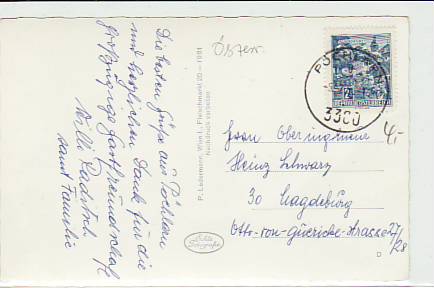 Die besten Grüße aus Pöchlarn
und herzlichen Dank für die
großzügige Gastfreundschaft
Willi Raditsch
samt Familie
P. Ledermann, Wien I., Fleischmarkt 20 — 1981
Nachdruck verboten
Echte
Österr.
3380
REPUBLIK ÖSTERREICH
4,-
Herrn Oberingenieur
Heinz Schwarz
30 Magdeburg
Otto-von-Guericke-Strasse 27/28
D